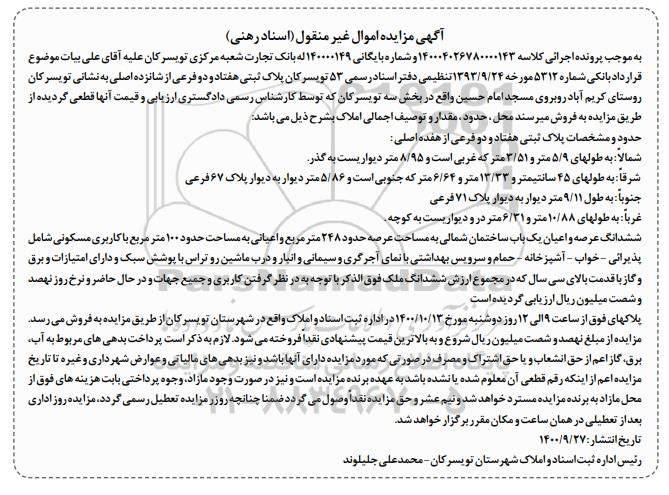 آگهی مزایده اموال غیر منقول (اسناد رهنی)
به موجب پرونده اجرائی کلاسه ۱۴۰۰۰۴۰۲۶۷۸۰۰۰۰۱۴۳ و شماره بایگانی ۱۴۰۰۰۰۱۴۹ له بانک تجارت شعبه مرکزی تویسرکان علیه آقای علی بیات موضوع
قرارداد بانکی شماره ۵۳۱۲ مورخه ۱۳۹۳/۹/۲۴ تنظیمی دفتر اسناد رسمی ۵۳ تویسرکان پلاک ثبتی هفتاد و دو فرعی از شانزده اصلی به نشانی تویسرکان
روستای کریم آباد روبروی مسجد امام حسین واقع در بخش سه تویسرکان که توسط کارشناس رسمی دادگستری ارزیابی و قیمت آنها قطعی گردیده از
طریق مزایده به فروش میرسند محل، حدود، مقدار و توصیف اجمالی املاک بشرح ذیل می باشد:
حدود و مشخصات پلاک ثبتی هفتاد و دو فرعی از هفده اصلی:
شمالاً: به طولهای ۵/۹ متر و ۳/۵۱ متر که غربی است و ۸/۹۵ متر دیواریست به گذر.
شرقاً: به طولهای ۴۵ سانتیمتر و ۱۳/۳۳ متر و ۶/۶۴ متر که جنوبی است و ۵/۸۶ متر دیوار به دیوار پلاک ۶۷ فرعی
جنوباً: به طول ۹/۱۱ متر دیوار به دیوار پلاک ۷۱ فرعی
غرباً: به طولهای ۱۰/۸۸ متر و ۶/۳۱ متر در و دیواریست به کوچه.
ششدانگ عرصه و اعیان یک باب ساختمان شمالی به مساحت عرصه حدود ۲۴۸ متر مربع و اعیانی به مساحت حدود ۱۰۰ متر مربع با کاربری مسکونی شامل
پذیرائی - خواب - آشپزخانه - حمام و سرویس بهداشتی با نمای آجر گری و سیمانی و انبار و درب ماشین رو تراس با پوشش سبک و دارای امتیازات و برق
و گاز با قدمت بالای سی سال که در مجموع ارزش ششدانگ ملک فوق الذکر با توجه به در نظر گرفتن کاربری و جمیع جهات و در حال حاضر و نرخ روز نهصد
و شصت میلیون ریال ارزیابی گردیده است
پلاکهای فوق از ساعت ۹ الی ۱۲ روز دوشنبه مورخ ۱۴۰۰/۱۰/۱۳ در اداره ثبت اسناد و املاک واقع در شهرستان تویسرکان از طریق مزایده به فروش می رسد.
مزایده از مبلغ نهصد و شصت میلیون ریال شروع و به بالاترین قیمت پیشنهادی نقداً فروخته می شود. لازم به ذکر است پرداخت بدهی های مربوط به آب،
برق، گاز اعم از حق انشعاب و یا حق اشتراک و مصرف در صورتی که مورد مزایده دارای آنها باشد و نیز بدهی های مالیاتی و عوارض شهرداری و غیره تا تاریخ
مزایده اعم از اینکه رقم قطعی آن معلوم شده یا نشده باشد به عهده برنده مزایده است و نیز در صورت وجود مازاد، وجوه پرداختی بابت هزینه های فوق از
محل مازاد به برنده مزایده مسترد خواهد شد و نیم عشر و حق مزایده نقداً وصول می گردد ضمنا چنانچه روز مزایده تعطیل رسمی گردد، مزایده روز اداری
بعد از تعطیلی در همان ساعت و مکان مقرر برگزار خواهد شد.
تاریخ انتشار: ۱۴۰۰/۹/۲۷
رئیس اداره ثبت اسناد و املاک شهرستان تویسرکان - محمدعلی جلیلوند
ParsNamadData
۰۲۱-۸۸۳۴۹۶۷۰-۵